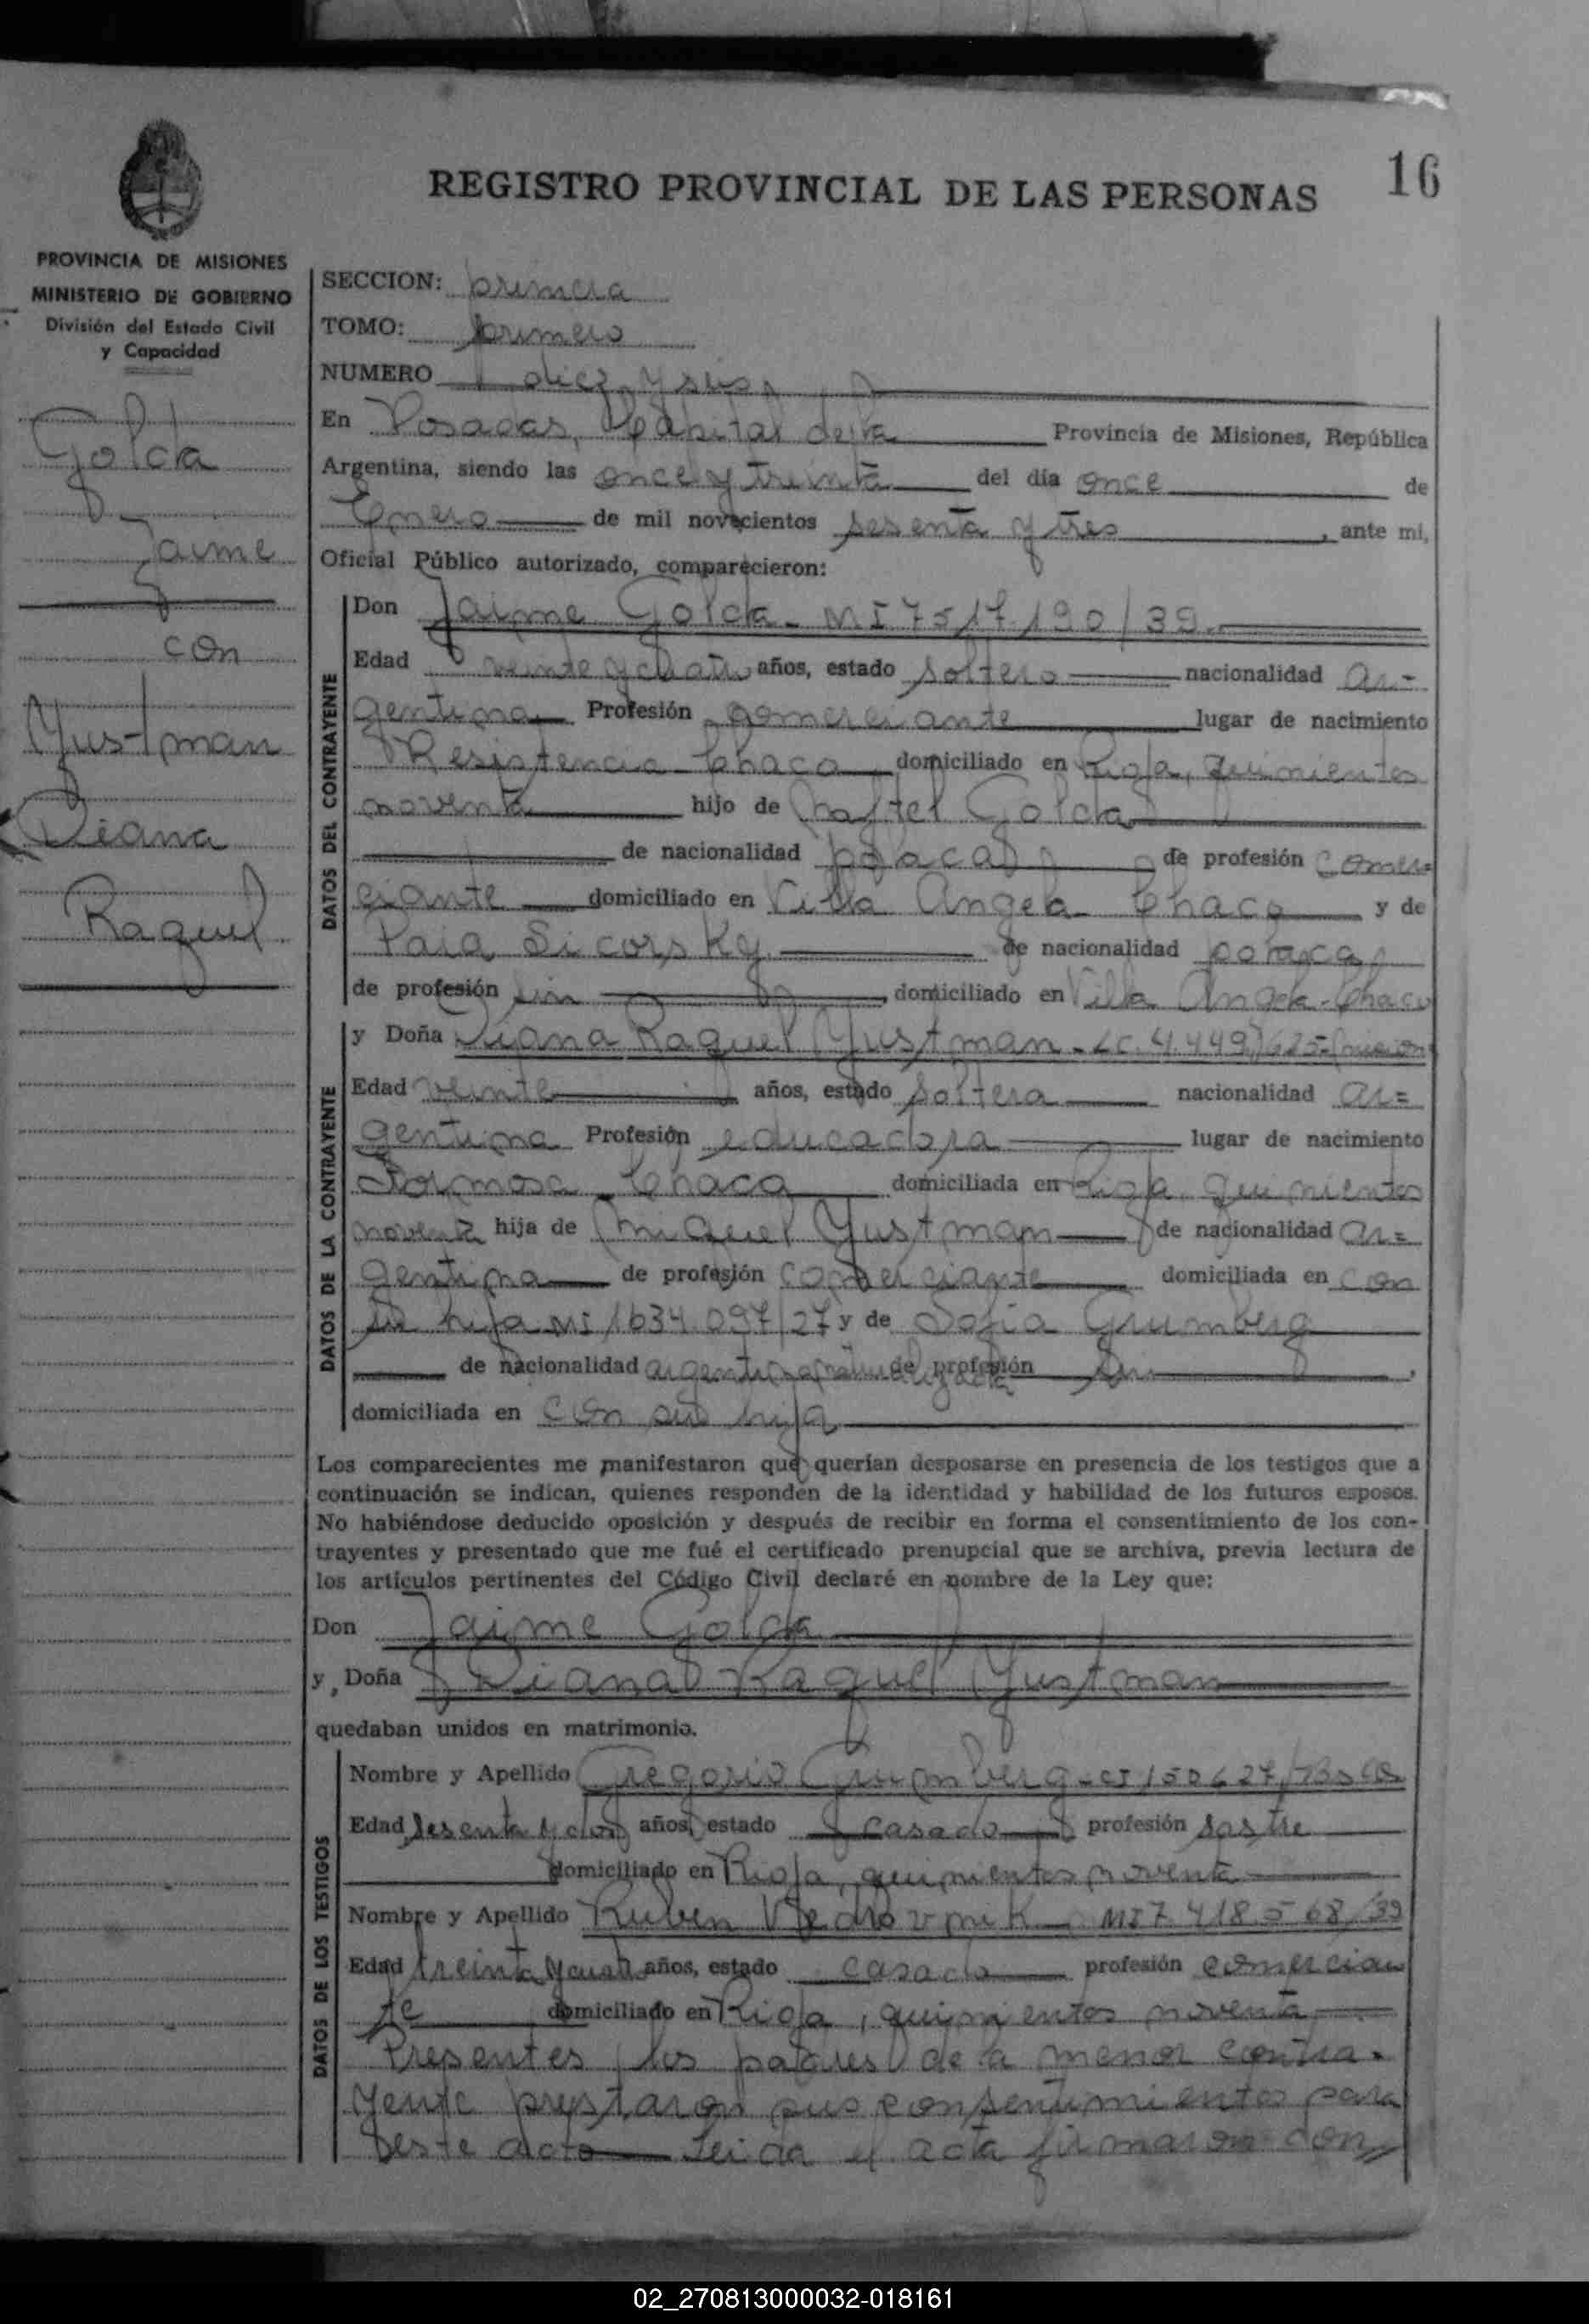 16
REGISTRO PROVINCIAL DE LAS PERSONAS
PROVINCIA DE MISIONES
MINISTERIO DE GOBIERNO
División del Estado Civil
y Capacidad
Golda
Jaime
con
Yustman
Diana
Raquel
SECCION: primera
TOMO: primero
NUMERO diez y seis
En Posadas, Capital de la Provincia de Misiones, República
Argentina, siendo las once y treinta del día once de
Enero de mil novecientos sesenta y tres, ante mi,
Oficial Público autorizado, comparecieron:
DATOS DEL CONTRAYENTE
Don Jaime Golda - MI 7517.190/39
Edad veinte y cuatro años, estado soltero nacionalidad ar=
gentina Profesión comerciante lugar de nacimiento
Resistencia Chaco domiciliado en Rioja, quinientos
noventa hijo de Golda
de nacionalidad polaca de profesión comer=
ciante domiciliado en Villa Angela - Chaco y de
Paia Sicorsky de nacionalidad polaca
de profesión sin domiciliado en Villa Angela - Chaco
DATOS DE LA CONTRAYENTE
y Doña Diana Raquel Yustman - LC. 4.449.625-
Edad veinte años, estado soltera nacionalidad ar=
gentina Profesión educadora lugar de nacimiento
Formosa - Chaco domiciliada en Rioja quinientos
noventa hija de Miguel Yustman de nacionalidad ar=
gentina de profesión comerciante domiciliada en con
su hija MI 1634.097/27 y de Sofia Grumberg
de nacionalidad argentina naturalizada de profesión sin,
domiciliada en con su hija
Los comparecientes me manifestaron que querían desposarse en presencia de los testigos que a
continuación se indican, quienes responden de la identidad y habilidad de los futuros esposos.
No habiéndose deducido oposición y después de recibir en forma el consentimiento de los con-
trayentes y presentado que me fué el certificado prenupcial que se archiva, previa lectura de
los artículos pertinentes del Código Civil declaré en nombre de la Ley que:
Don Jaime Golda
y, Doña Diana Raquel Yustman
quedaban unidos en matrimonio.
DATOS DE LOS TESTIGOS
Nombre y Apellido Gregorio Grumberg - CI 150627
Edad sesenta y dos años, estado casado profesión sastre
domiciliado en Rioja, quinientos noventa
Nombre y Apellido Ruben Vedrovnik MI 7.418.568/39
Edad treinta y cuatro años, estado casado profesión comercian
te domiciliado en Rioja, quinientos noventa
Presentes los padres de la menor contra-
yente prestaron sus consentimientos para
este acto Leida el acta firmaron con
02_270813000032-018161